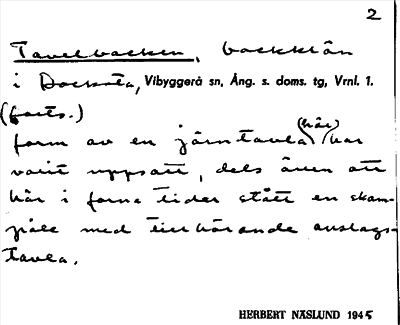 2
Tavelbacken, backkrön
i Docksta, Vibyggerå sn, Ång. s. doms. tg, Vrnl. 1.
(forts.)
form av en järntavla (här) har
varit uppsatt, dels även att
här i forna tider stått en skam-
påle med tillhörande anslags-
tavla.
HERBERT NÄSLUND 1945